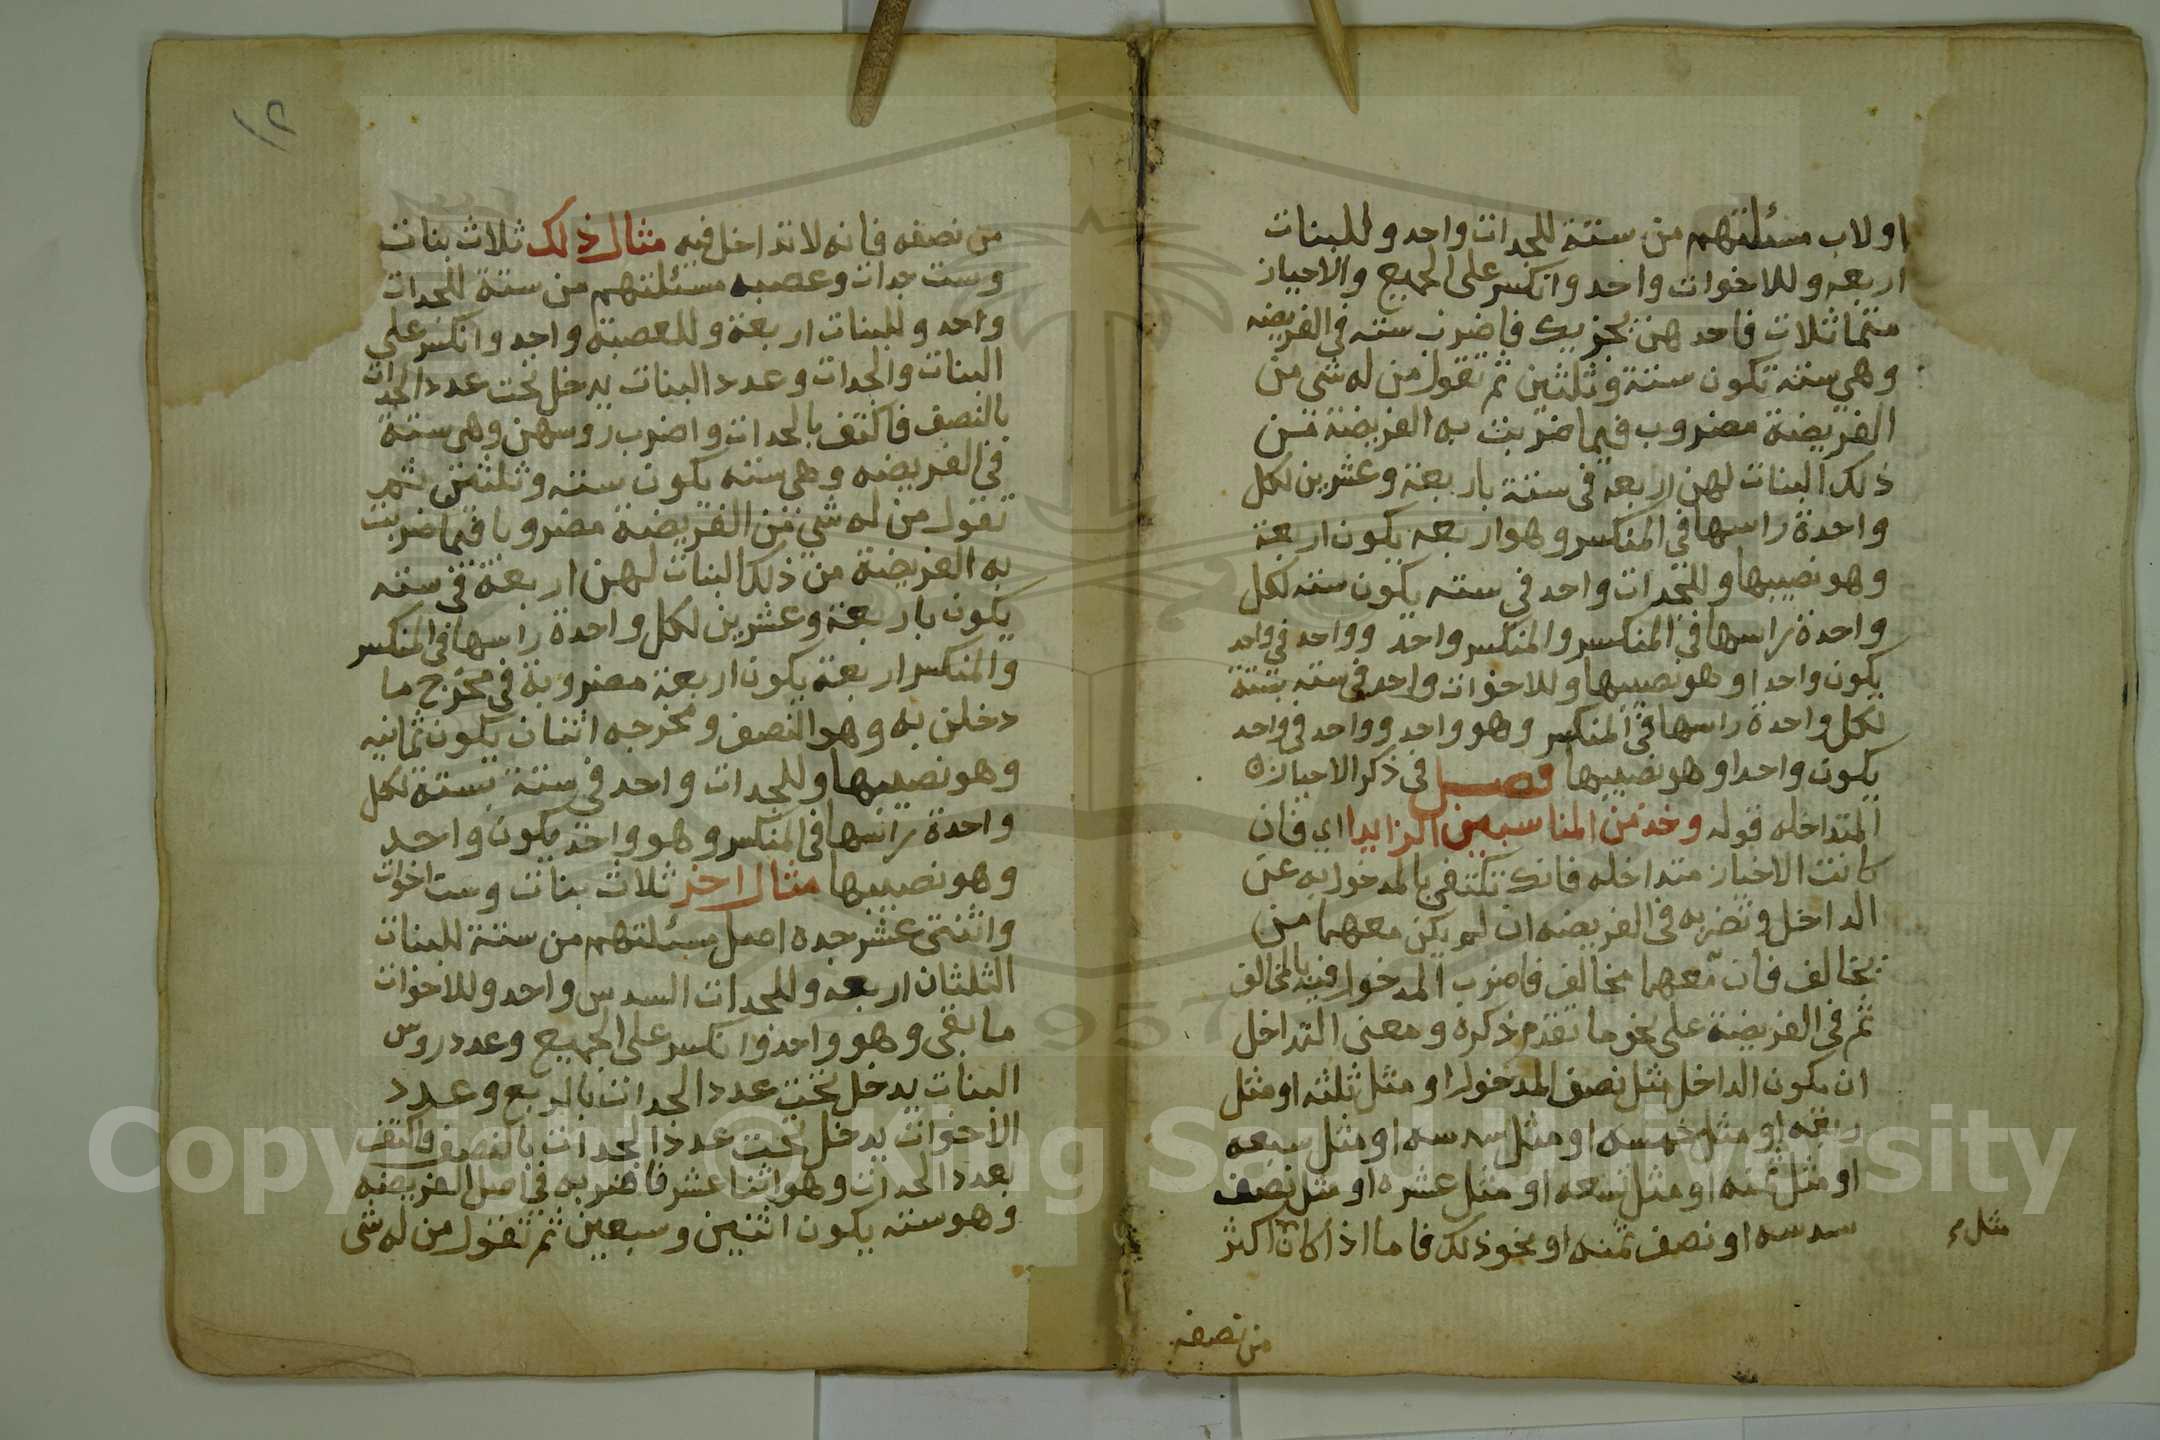 اولاب مسئلتهم من ستة للجدات واحد وللبنات
اربعه وللاخوات واحد وانكسر على الجميع والاحياز
متماثلات فاحدهن يجزيك فاضرب سته في الفريضه
وهي سته تكون ستة وثلثين ثم تقول من له شي من
الفريضة مضروب فيما ضربت به الفريضة فمن
ذلك البنات لهن اربعه في ستة باربعة وعشرين لكل
واحدة راسها في المنكسر وهو اربعه يكون اربعة
وهو نصيبها وللجدات واحد في سته يكون سته لكل
واحدة راسها في المنكسر والمنكسر واحد وواحد في واحد
يكون واحدا وهو نصيبها وللاخوات واحد في سته بستة
لكل واحدة راسها في المنكسر وهو واحد وواحد في واحد
يكون واحدا وهو نصيبها فصل في ذكر الاحياز
المتداخله قوله وخذ من المناسبين الزايدا اي فان
كانت الاحياز متداخله فانك تكتفي بالمدخول به عن
الداخل وتضربه في الفريضه ان لم يكن معهما من
يخالف فان معهما مخالف فاضرب المدخول فيه بالمخالف
ثم في الفريضة على نحو ما تقدم ذكره ومعنى التداخل
ان يكون الداخل مثل نصف المدخول او مثل ثلثه او مثل
ربعه او مثل خمسه او مثل سدسه او مثل سبعه
او مثل ثمنه او مثل تسعه او مثل عشره او مثل نصف
سدسه او نصف ثمنه او نحو ذلك فاما اذا كان اكثر
مثل
من نصفه
١٢
من نصفه فانه لا تداخل فيه مثال ذلك ثلاث بنات
وست جدات وعصبه مسئلتهم من ستة للجدات
واحد وللبنات اربعة وللعصبة واحد وانكسر على
البنات والجدات وعدد البنات يدخل تحت عدد الجدات
بالنصف فاكتف بالجدات واضرب روسهن وهي ستة
في الفريضه وهي سته يكون سته وثلثين ثم
تقول من له شي من الفريضة مضروبا فيما ضربت
به الفريضة من ذلك البنات لهن اربعة في سته
يكون باربعة وعشرين لكل واحدة راسها في المنكسر
والمنكسر اربعة يكون اربعة مضروبة في مخرج ما
دخلن به وهو النصف ومخرجه اثنان يكون ثمانيه
وهو نصيبها وللجدات واحد في ستة بستة لكل
واحدة راسها في المنكسر وهو واحد يكون واحد
وهو نصيبها مثال اخر ثلاث بنات وست اخوات
واثنتي عشر جده اصل مسئلتهم من ستة للبنات
الثلثان اربعه وللجدات السدس واحد وللاخوات
ما بقي وهو واحد وانكسر على الجميع وعدد روس
البنات يدخل تحت عدد الجدات بالربع وعدد
الاخوات يدخل تحت عدد الجدات بالنصف فاكتف
بعدد الجدات وهو اثنا عشر فاضربه في اصل الفريضه
وهو سته يكون اثنين وسبعين ثم تقول من له شي
Copyright © King Saud University
1957